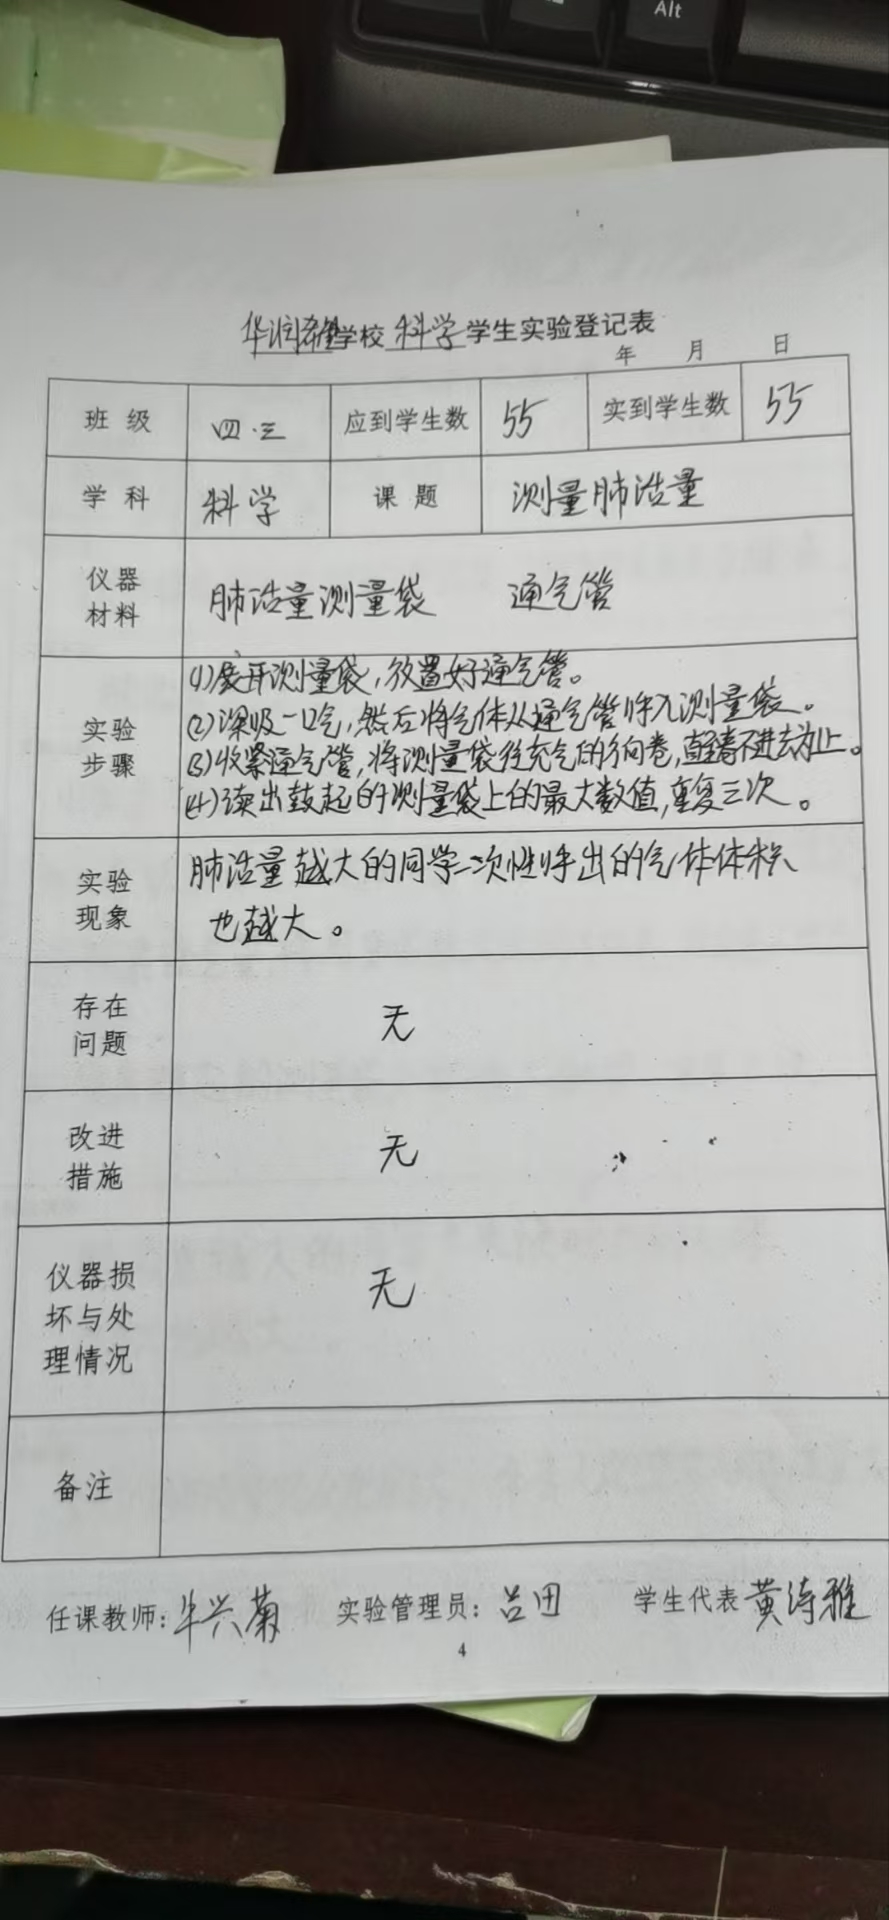 Alt
华润希望学校 科学 学生实验登记表
年 月 日
班 级 四.三 应到学生数 55 实到学生数 55
学 科 科学 课 题 测量肺活量
仪器
材料
肺活量测量袋 通气管
实验
步骤
(1)展开测量袋,放置好通气管。
(2)深吸一口气,然后将气体从通气管呼入测量袋。
(3)收紧通气管,将测量袋往充气的方向卷,直至卷不进去为止。
(4)读出鼓起的测量袋上的最大数值,重复三次。
实验
现象
肺活量越大的同学一次性呼出的气体体积
也越大。
存在
问题
无
改进
措施
无
仪器损
坏与处
理情况
无
备注
任课教师: 兴菊 实验管理员: 吕田 学生代表 黄诗雅
4